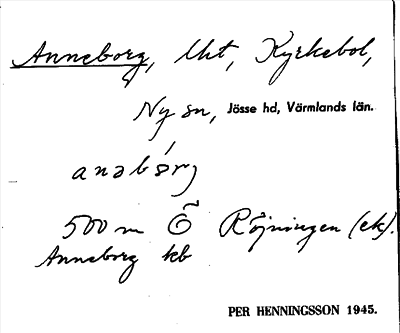 Anneborg, lht, Kyrkebol,
Ny sn, Jösse hd, Värmlands län.
anəbórj
500 m Ö Röjningen (ek).
Anneborg kb
PER HENNINGSSON 1945.